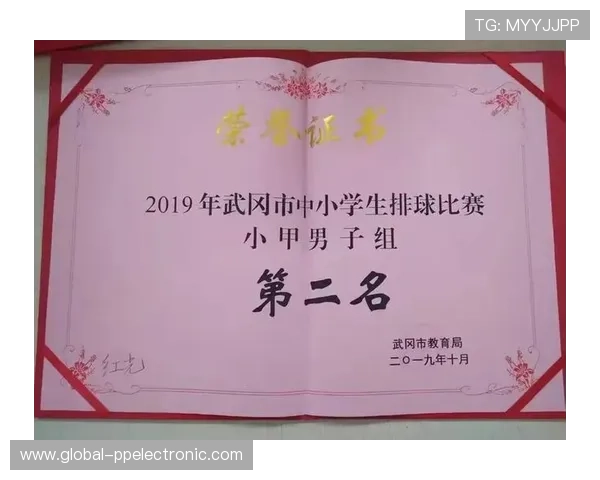 TG: MYYJJPP
荣誉证书
2019年武冈市中小学生排球比赛
小甲男子组
第二名
武冈市教育局
二〇一九年十月
红光
www.global-ppelectronic.com